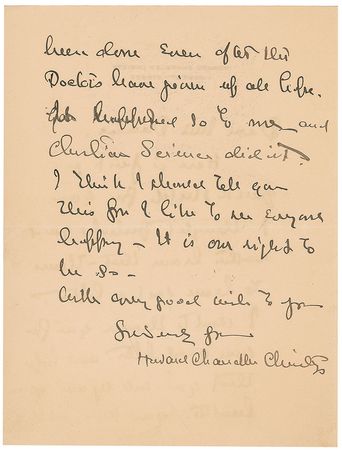 been done even after the
Doctors have given up all hope.
It happened so to me and
Christian Science did it.
I think I should tell you
this for I like to see everyone
happy — It is our right to
be so —
With every good wish to you
Sincerely yours
Howard Chandler Christy